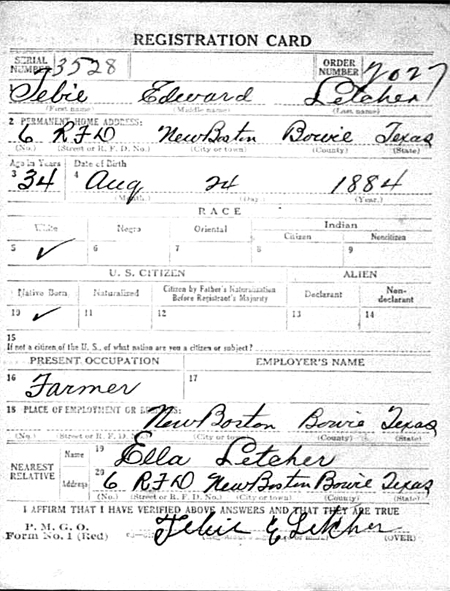 REGISTRATION CARD
SERIAL NUMBER 3528 ORDER NUMBER 2027
Febie Edward Letcher
(First name) (Middle name) (Last name)
2 PERMANENT HOME ADDRESS:
6 R.F.D New Boston Bowie Texas
(No.) (Street or R. F. D. No.) (City or town) (County) (State)
Age in Years Date of Birth
3 34 4 Aug 24 1884
(Month.) (Day.) (Year.)
RACE
White Negro Oriental Indian
Citizen Noncitizen
5 ✓ 6 7 8 9
U. S. CITIZEN ALIEN
Native Born Naturalized Citizen by Father's Naturalization Before Registrant's Majority Declarant Non-declarant
10 ✓ 11 12 13 14
15
If not a citizen of the U. S., of what nation are you a citizen or subject?
PRESENT OCCUPATION EMPLOYER'S NAME
16 Farmer 17
18 PLACE OF EMPLOYMENT OR BUSINESS:
New Boston Bowie Texas
(No.) (Street or R. F. D. No.) (City or town) (County) (State)
NEAREST RELATIVE Name 19 Ella Letcher
Address 20 6 R.F.D. New Boston Bowie Texas
(No.) (Street or R. F. D. No.) (City or town) (County) (State)
I AFFIRM THAT I HAVE VERIFIED ABOVE ANSWERS AND THAT THEY ARE TRUE
P. M. G. O.
Form No. 1 (Red) Febie E Letcher (OVER)